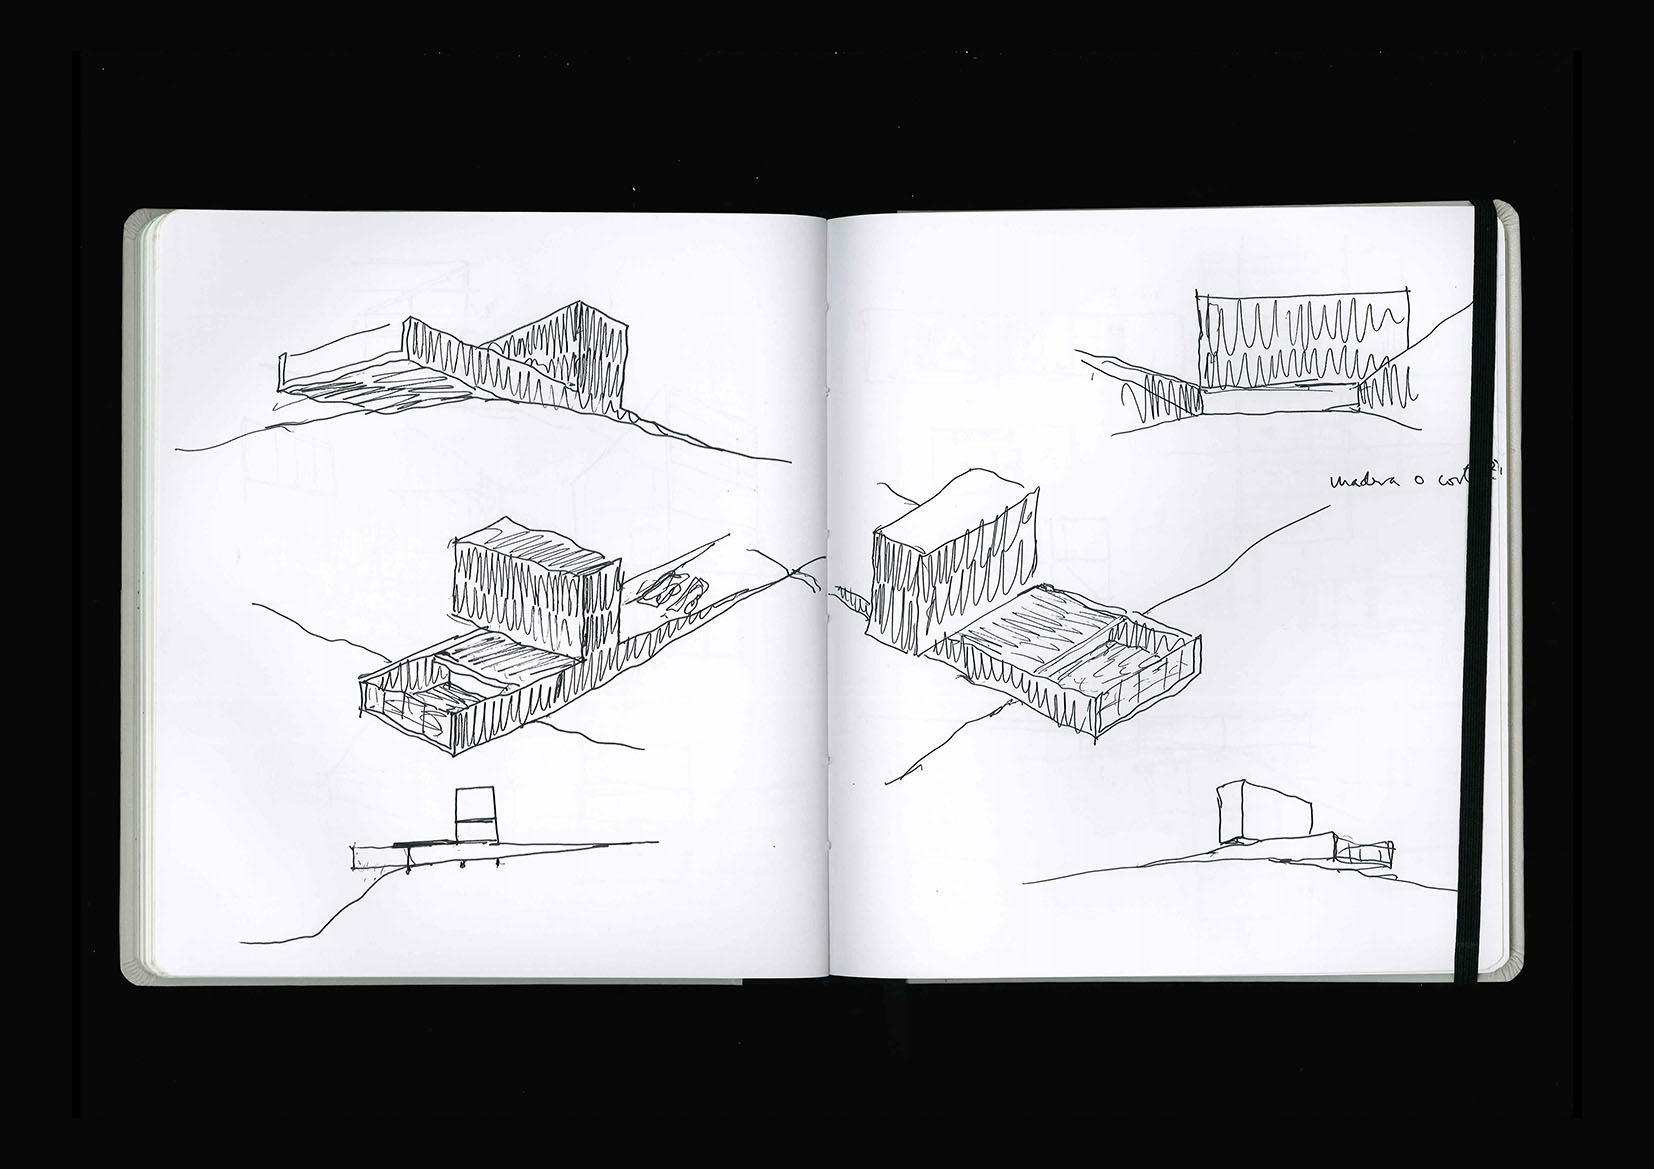 madera o cort